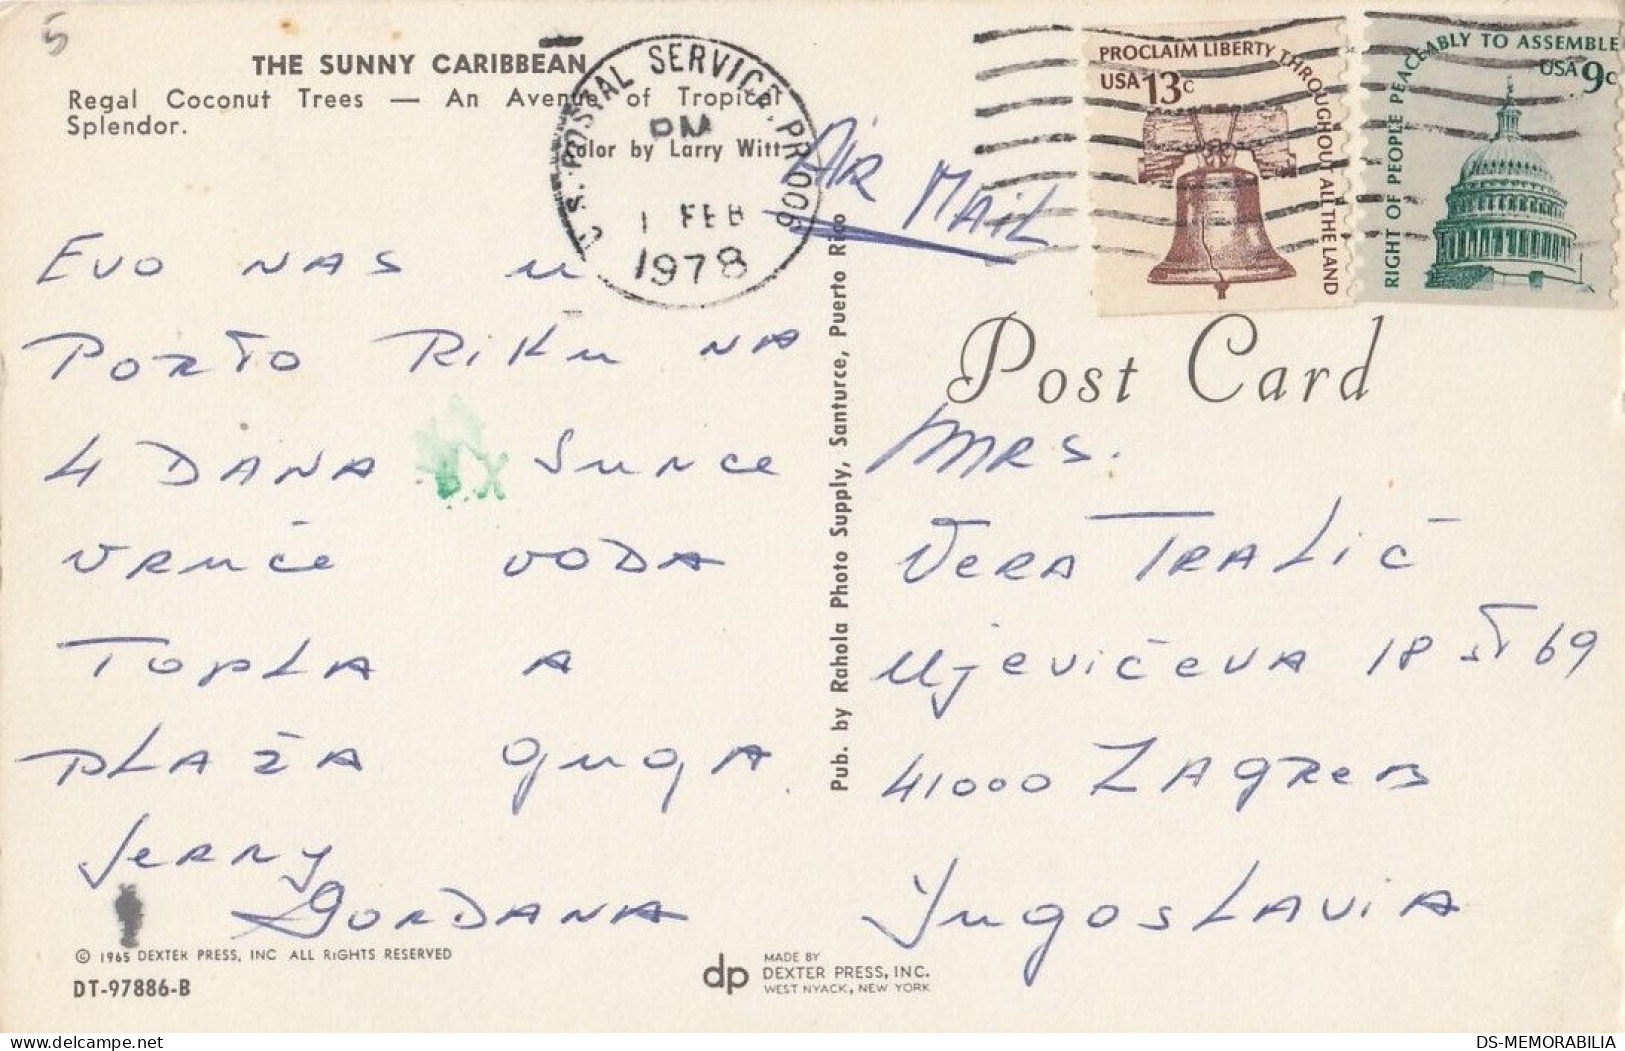 5
THE SUNNY CARIBBEAN
Regal Coconut Trees — An Avenue of Tropical
Splendor.
Color by Larry Witt
U.S. POSTAL SERVICE, PR 009
PM
1 FEB
1978
AIR MAIL
PROCLAIM LIBERTY THROUGHOUT ALL THE LAND
USA 13c
RIGHT OF PEOPLE PEACEABLY TO ASSEMBLE
USA 9c
EVO NAS u
PORTO RIKu NA
4 DANA SUNCE
VRUĆE VODA
TOPLA A
PLAŽA GUGA
Jerry
GORDANA
Pub. by Rahola Photo Supply, Santurce, Puerto Rico
Post Card
MRS.
VERA TRALIĆ
Ujevićeva 18 ST 69
41000 ZAGREB
Jugoslavia
© 1965 DEXTER PRESS, INC ALL RIGHTS RESERVED
DT-97886-B
dp
MADE BY
DEXTER PRESS, INC.
WEST NYACK, NEW YORK
DS-MEMORABILIA
delcampe.net